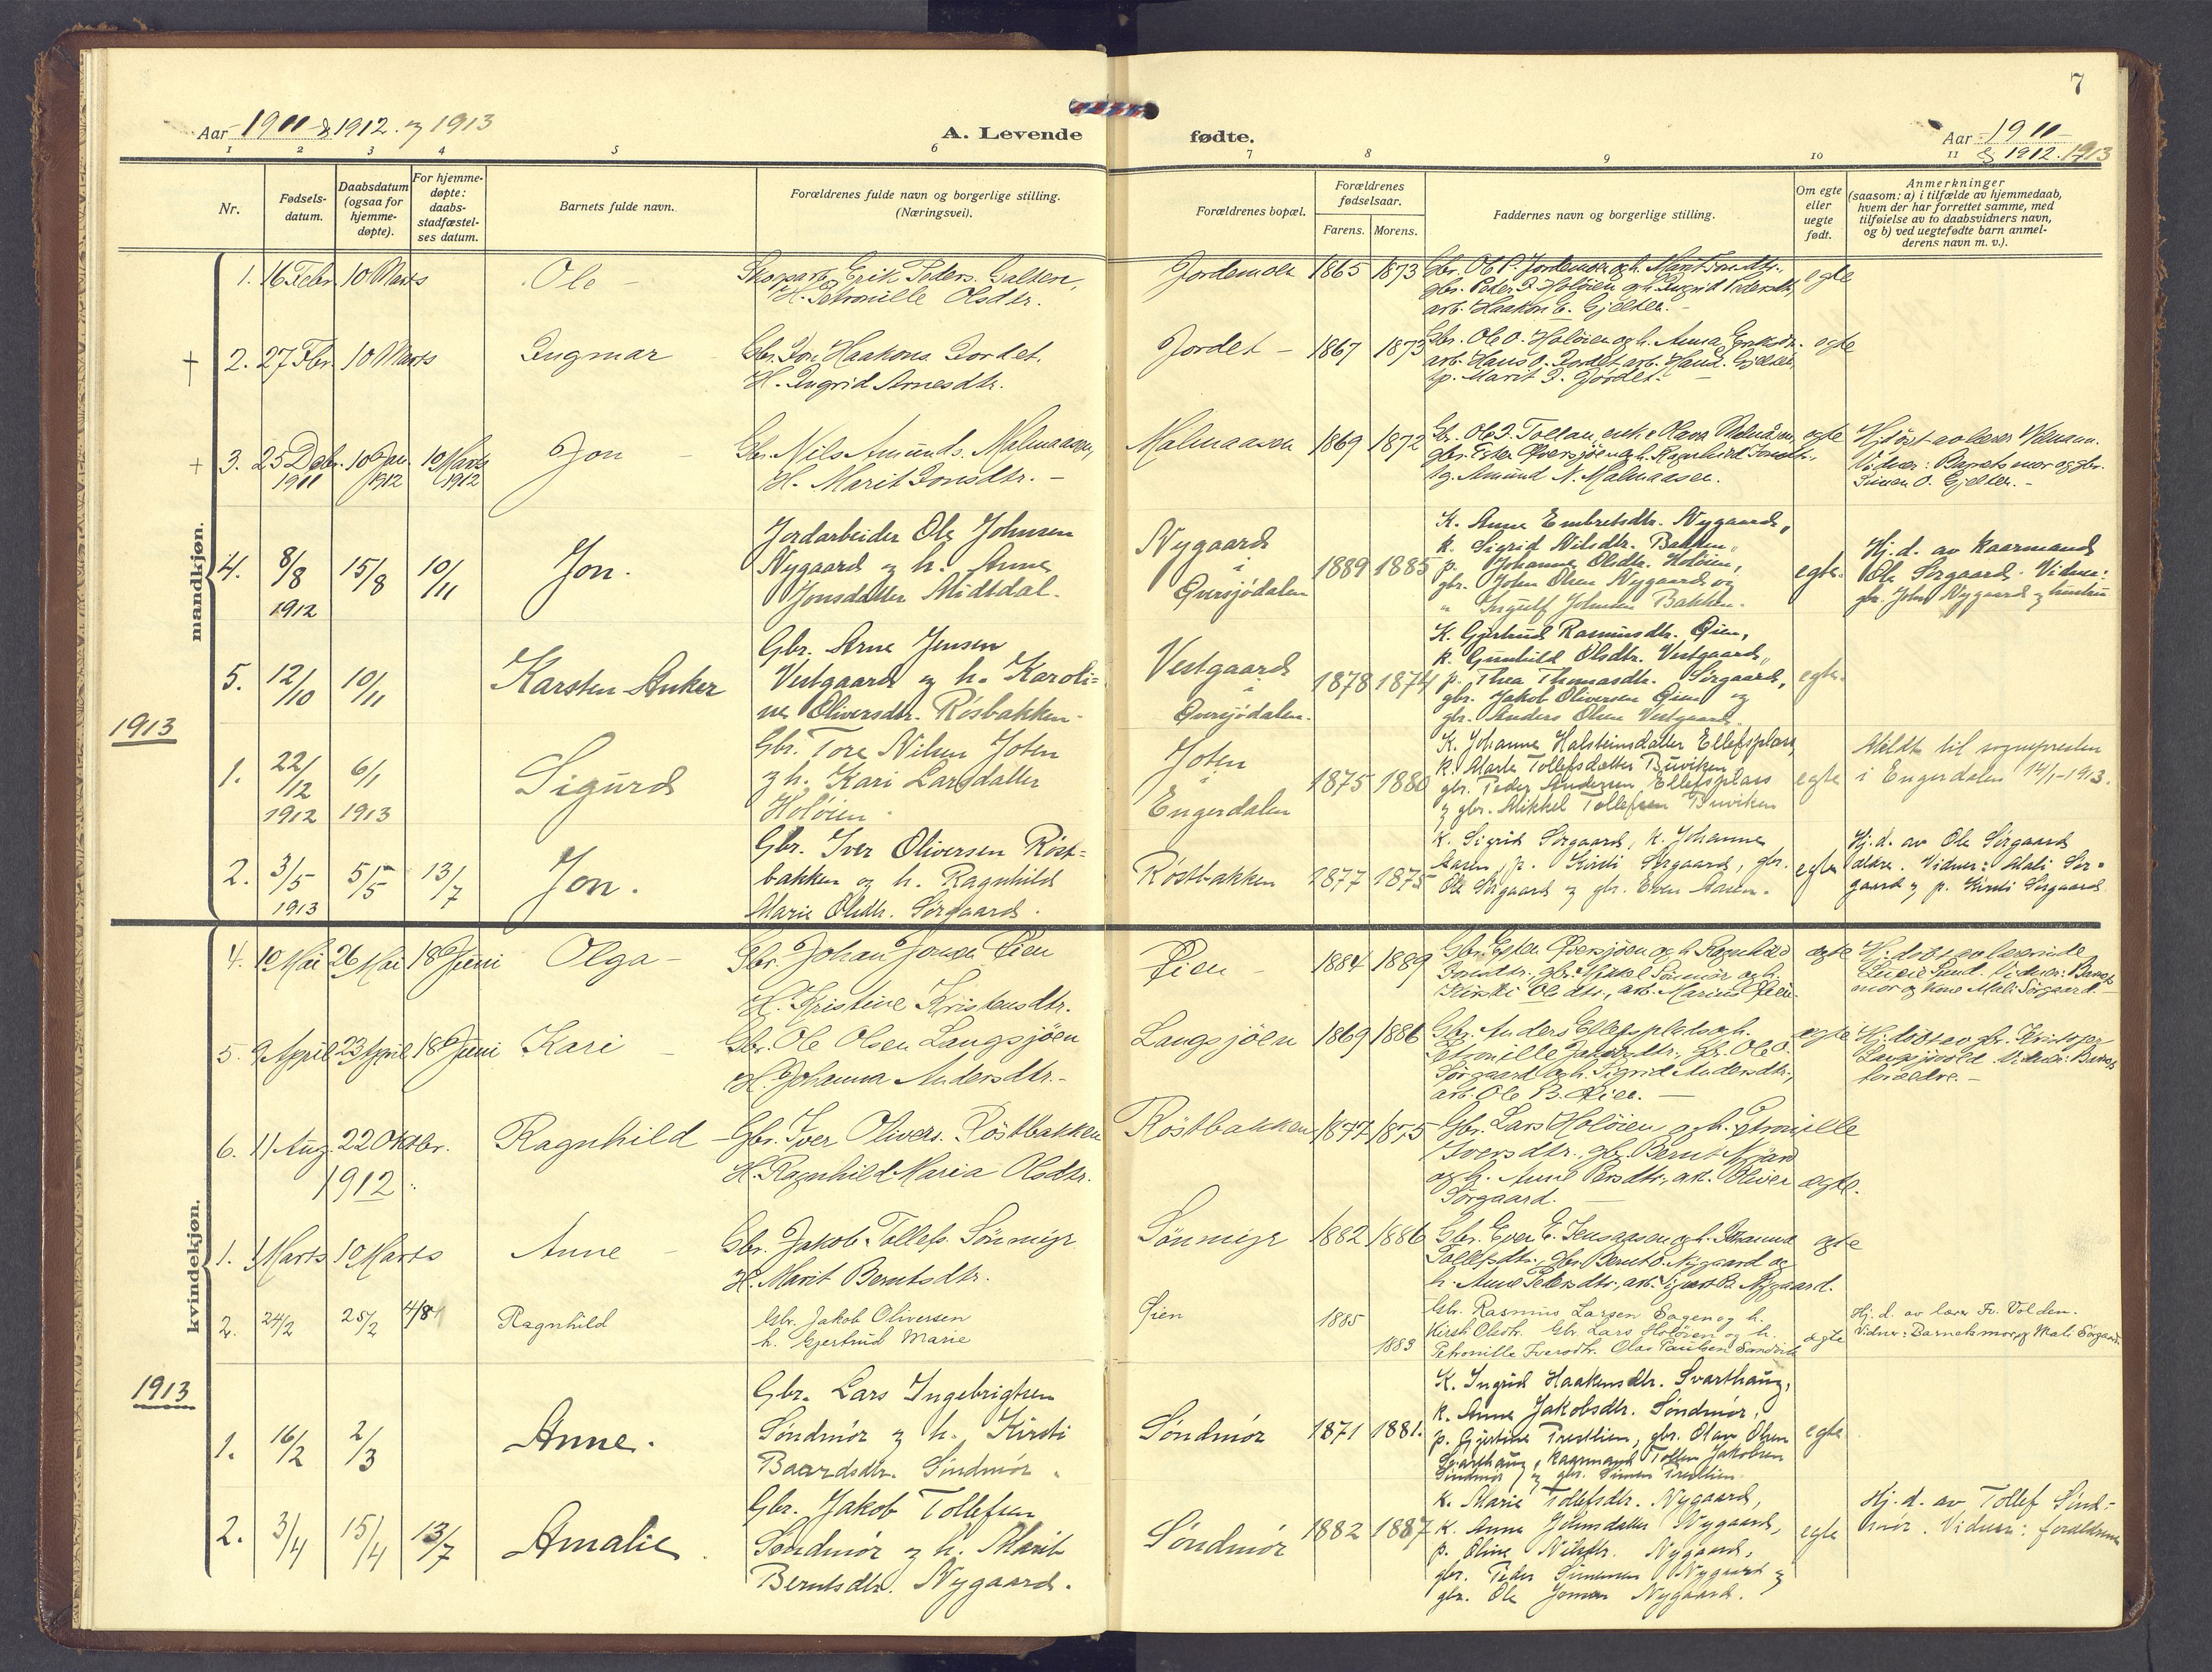 7
Aar 1911 & 1912. og 1913
A. Levende
fødte.
Aar 1911
& 1912. 1913
1 2 3 4 5 6 7 8 9 10 11
Nr.
Fødsels-
datum.
Daabsdatum
(ogsaa for
hjemme-
døpte).
For hjemme-
døpte:
daabs-
stadfæstel-
ses datum.
Barnets fulde navn.
Forældrenes fulde navn og borgerlige stilling.
(Næringsvei).
Forældrenes bopæl.
Forældrenes
fødselsaar.
Farens. Morens.
Faddernes navn og borgerlige stilling.
Om egte
eller
uegte
født.
Anmerkninger
(saasom: a) i tilfælde av hjemmedaab,
hvem der har forrettet samme, med
tilføielse av to daabsvidners navn,
og b) ved uegtefødte barn anmel-
derens navn m. v.).
mandkjøn.
1. 16 Febr. 10 Marts
Ole
Erik Peders. Galten,
H. Petronille Olsdtr.
Jordemoen 1865 1873
Gbr. Ole P. Jordemoen og h. Marit
gbr. Peder Holøien og h. Ingrid Pedersdtr,
arb. Haakon E. Gjelten.
egte
† 2. 27 Fbr. 10 Marts
Ingmar
Gbr. Jon Haakons. Jordet.
H. Ingrid Arnesdtr.
Jordet 1867 1873
Gbr. Ole O. Holøien og h. Anna
arb. Hans O. Jordet, arb. Gjelten,
p. Marit J. Jordet.
egte
† 3. 25 Debr. 10 Jan. 10 Marts
1911 1912 1912
Jon
Gbr. Nils Amunds. Malmaasen,
H. Marit Jonsdtr.
Malmaasen 1869 1872
Gbr. Ole J. Tollan, enke
gbr. Ester Qversjøen og h. Ragnhild Jonsdtr.,
Amund N. Malmaasen.
egte
Hj.døpt av lærer
Vidner: Barnets mor og gbr.
Simen O. Gjelten.
4. 8/8 15/8 10/11
1912
Jon.
Jordarbeider Ole Johnsen
Nygaard og h. Anne
Jonsdatter Midtdal.
Nygaard
i
Qversjødalen
1889 1885
K. Anne Embretsdtr. Nygaard,
k. Sigrid Nilsdtr. Bakken,
p. Johanne Olsdtr. Holøien,
gbr. John Olsen Nygaard og
" Ingulf Johnsen Bakken.
egte.
Hj.d. av kaarmand
Ole Sørgaard. Vidner:
gbr. John Nygaard og hustru
5. 12/10 10/11
Karsten Anker
Gbr. Arne Jensen
Vestgaard og h. Karoli=
ne Oliversdtr. Røsbakken.
Vestgaard
i
Qversjødalen.
1878 1874
K. Gjertrud Rasmusdtr. Øien,
k. Gunhild Olsdtr. Vestgaard,
p. Thea Thomasdtr. Sørgaard,
gbr. Jakob Oliversen Øien og
gbr. Anders Olsen Vestgaard.
egte.
1913
1. 22/12 6/1
1912 1913
Sigurd
Gbr. Tore Nilsen Joten
og h. Kari Larsdatter
Holøien
Joten
i
Engerdalen
1875 1880
K. Johanne Halsteinsdatter Ellefsplass,
k. Marte Tollefsdatter Buviken,
gbr. Peder Andersen Ellefsplass
og gbr. Mikkel Tollefsen Buviken
egte
Meldt til sognepresten
i Engerdalen 14/1-1913.
2. 3/5 5/5 13/7
1913
Jon.
Gbr. Iver Oliversen Røst=
bakken og h. Ragnhild
Marie Olsdtr. Sørgaard.
Røstbakken 1877 1875
K. Sigrid Sørgaard, k. Johanne
Aasen, p. Kirsti Sørgaard, gbr.
Ole Sørgaard og gbr. Even Aasen.
egte
Hj.d. av Ole Sørgaard
ældre. Vidner: Mali Sør=
gaard og p. Kirsti Sørgaard
kvindekjøn.
4. 10 Mai 26 Mai 18 Juni
Olga
Gbr. Johan Jonsen Øien
H. Kristine Kristensdtr.
Øien 1884 1889
Gbr. Esten Qversjøen og h. Ragnhild
Jonsdtr., gbr. Mikkel Sønmør og h.
Kirsti Olsdtr., arb. Marius Øien.
egte
Hj.døpt av lærerinde
Lund. Vidner: Barnets
mor og kone Mali Sørgaard.
5. 9 April 23 April 18 Juni
Kari
Gbr. Ole Olsen Langsjøen
H. Johanna Andersdtr.
Langsjøen 1869 1886
Gbr. Anders Ellefsplads og h.
Petronille gbr. Ole O.
Sørgaard og h. Sigrid Andersdtr.,
arb. Ole B. Øien.
egte
Hj.døpt av gbr. Kristofer
Langsjøvold. Vidner: Barnets
forældre.
6. 11 Aug. 22 Oktbr.
Ragnhild
Gbr. Iver Olivers. Röstbakken
H. Ragnhild Maria Olsdtr.
Röstbakken 1877 1875
Gbr. Lars Holöien og h. Petronille
Iversdtr., gbr. Bernt
og h. Anne Persdtr., arb. Oliver
Sørgaard.
egte.
1912.
1. 1 Marts 10 Marts
Anne
Gbr. Jakob Tollefs. Sönmyr
H. Marit Berntsdtr.
Sönmyr 1882 1886
Gbr. Even E. og h. Johanne
Tollefsdtr., gbr. Bernt O. Nygaard og
h. Anne Pedersdtr., arb. B. Nygaard.
egte
2. 24/2 25/2 4/8
Ragnhild
Gbr. Jakob Oliversen
h. Gjertrud Marie
Øien 1885
1883
Gbr. Rasmus Larsen Eagen og h.
Kirsti Olsdtr. Gbr. Lars Holøien og h.
Petronille Iversdtr. Olav Paulsen Sandvik
egte
Hj.d. av lærer Fr. Volden.
Vidner: Barnets mor og Mali Sørgaard.
1913
1. 16/2 2/3
Anne.
Gbr. Lars Ingebrigtsen
Søndmør og h. Kirsti
Baardsdtr. Søndmør.
Søndmør 1871 1881.
K. Ingrid Haakensdtr. Svarthaug,
k. Anne Jakobsdtr. Søndmør,
p. Gjertine Trestlien, gbr. Olav Olsen
Svarthaug, kaarmand Tollev Jakobsen
Søndmør og gbr. Simen Trestlien
egte
2. 3/4 15/4 13/7
Amalie.
Gbr. Jakob Tollefsen
Søndmør og h. Marit
Berntsdtr. Nygaard.
Søndmør 1882 1887
K. Marie Tollefsdtr. Nygaard,
k. Anne Johnsdatter Nygaard,
p. Oline Nilsdtr. Nygaard,
gbr. Peder Simensen Nygaard og
gbr. Ole Jonsen Nygaard.
egte
Hj.d. av Tollef Sønd-
mør. Vidner: forældrene